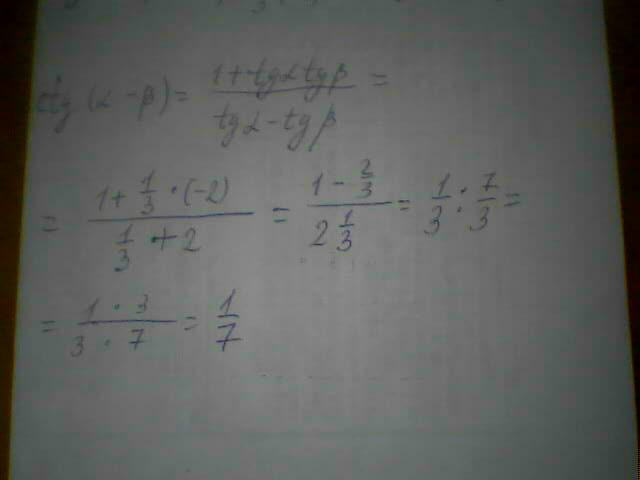 ctg (α - β) = \frac{1 + tgα tgβ}{tgα - tgβ} =
= \frac{1 + \frac{1}{3} · (-2)}{\frac{1}{3} + 2} = \frac{1 - \frac{2}{3}}{2\frac{1}{3}} = \frac{1}{3} : \frac{7}{3} =
= \frac{1 · 3}{3 · 7} = \frac{1}{7}